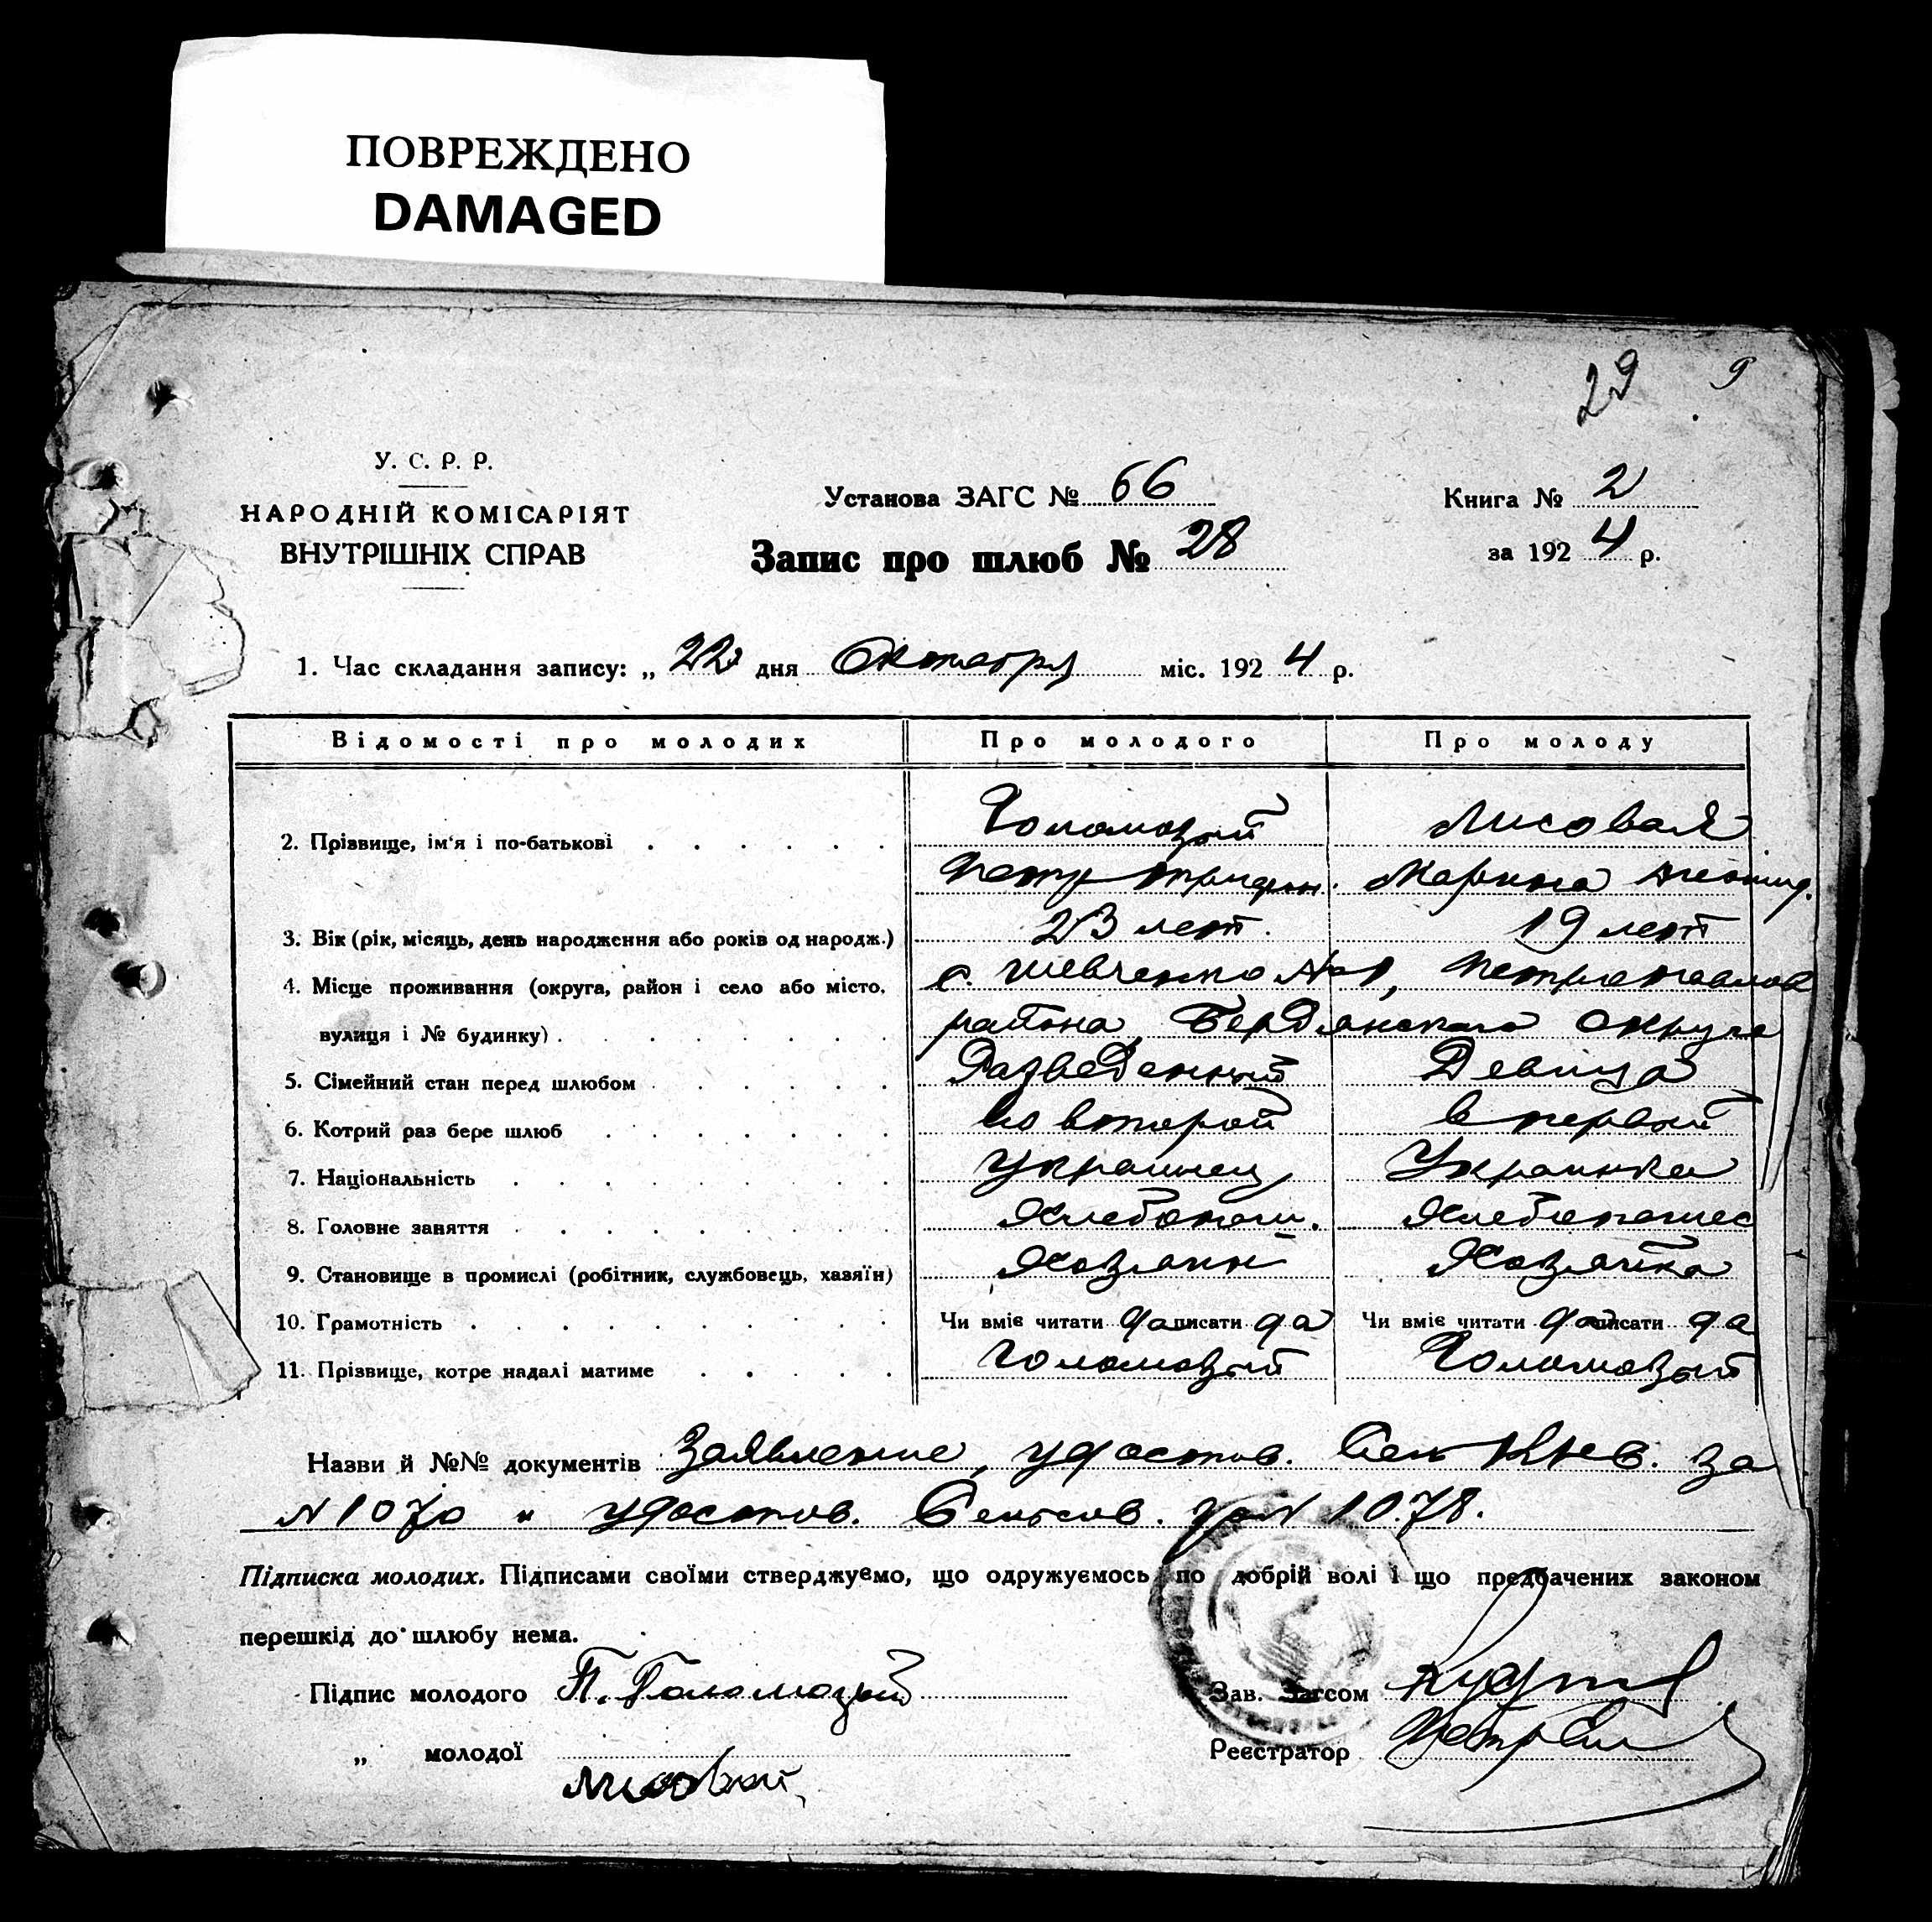 ПОВРЕЖДЕНО
DAMAGED
29 9
У. С. Р. Р.
НАРОДНІЙ КОМІСАРІЯТ
ВНУТРІШНІХ СПРАВ
Установа ЗАГС № 66
Запис про шлюб № 28
Книга № 2
за 1924 р.
1. Час складання запису: „ 22 дня Октября міс. 1924 р.
Відомості про молодих Про молодого Про молоду
2. Прізвище, ім'я і по-батькові Голомозый Лисовая
Петр Марина
3. Вік (рік, місяць, день народження або років од народж.) 23 лет. 19 лет
4. Місце проживання (округа, район і село або місто, с. Шевченко №1, Петропавлов
вулиця і № будинку) района Бердянского округа
5. Сімейний стан перед шлюбом Разведенный Девица
6. Котрий раз бере шлюб во второй в первый
7. Національність Украинец Украинка
8. Головне заняття Хлебопаш. Хлебопашес
9. Становище в промислі (робітник, службовець, хазяїн) Хозяин Хозяйка
10. Грамотність Чи вміє читати да писати да Чи вміє читати да писати да
11. Прізвище, котре надалі матиме Голомозый Голомозый
Назви й №№ документів Заявление, удостов. за
N 1070 и удостов. N 1078.
Підписка молодих. Підписами своїми стверджуємо, що одружуємось по добрій волі і що предбачених законом
перешкід до шлюбу нема.
Підпис молодого П. Голомозый Зав. Загсом
„ молодої Реєстратор